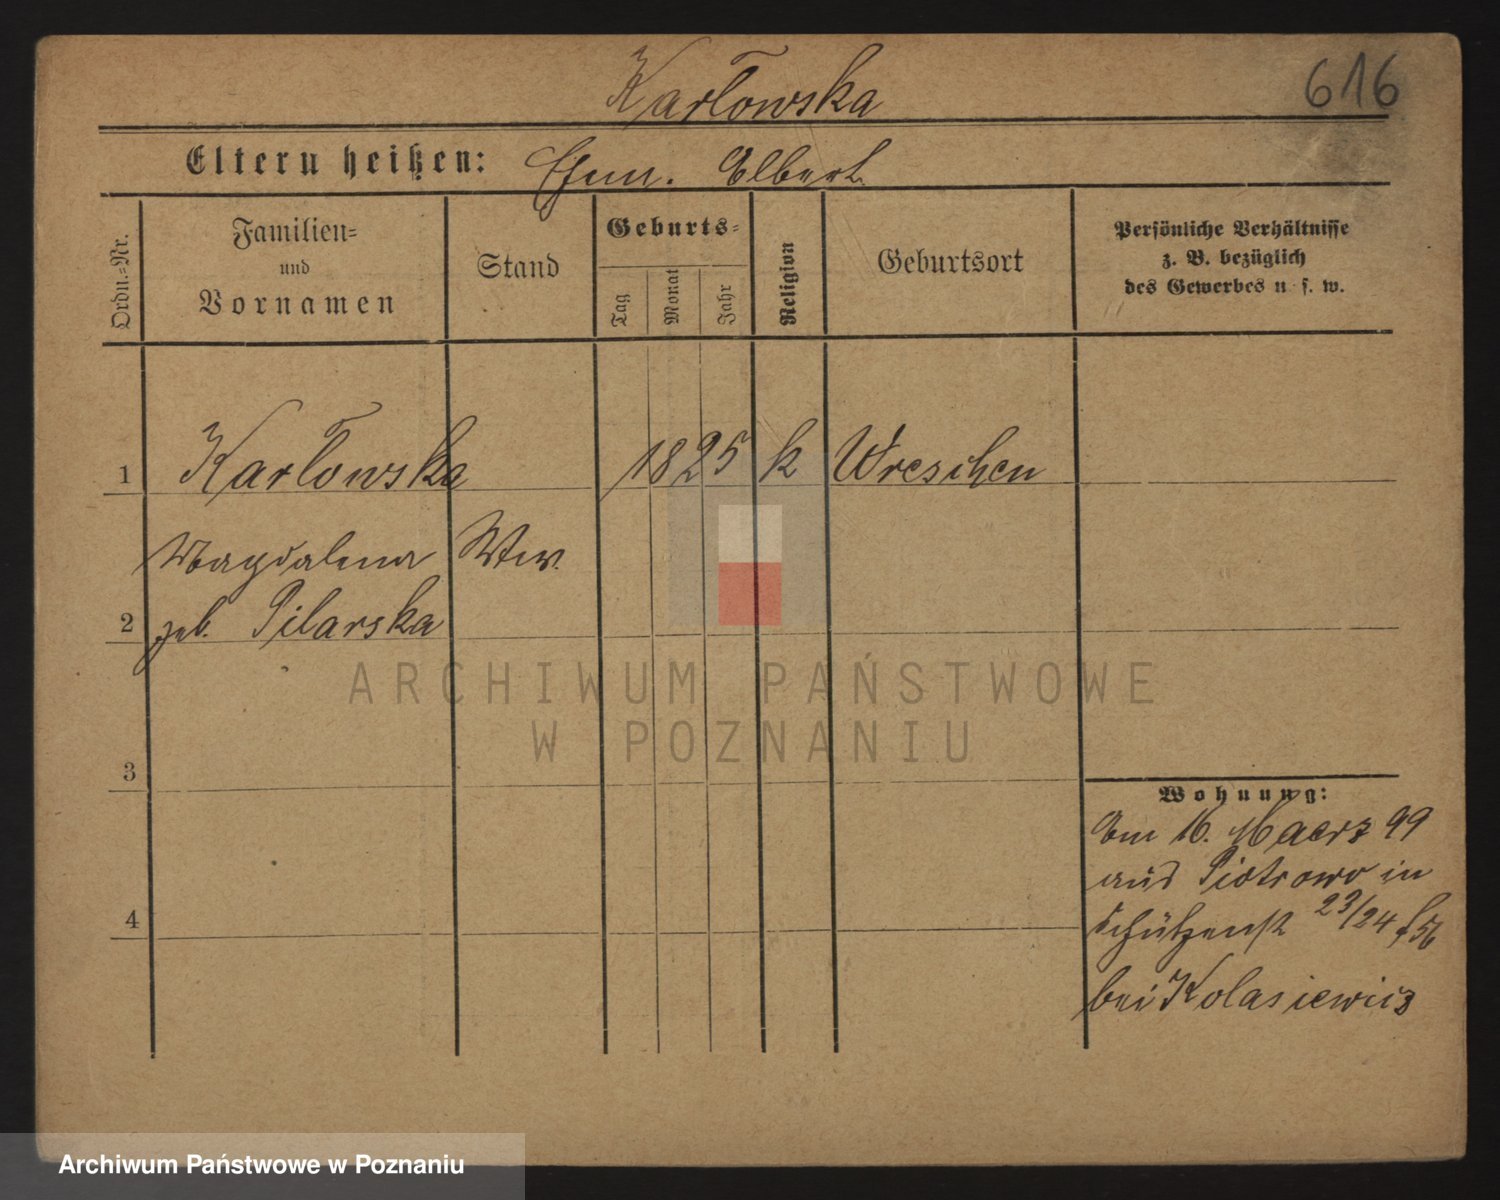 Karłowska
616
Eltern heißen: Ehm. Albert
Ordn.=Nr.
Familien=
und
Vornamen
Stand
Geburts=
Tag
Monat
Jahr
Religion
Geburtsort
Persönliche Verhältnisse
z. B. bezüglich
des Gewerbes u. s. w.
1 Karłowska 1825 k Wreschen
Magdalena Ww.
2 geb. Pilarska
3
Wohnung:
Am 16. Maerz 99
aus Piotrowo in
4 Schützenstr 23/24
bei Kolasiewicz
ARCHIWUM PAŃSTWOWE
W POZNANIU
Archiwum Państwowe w Poznaniu